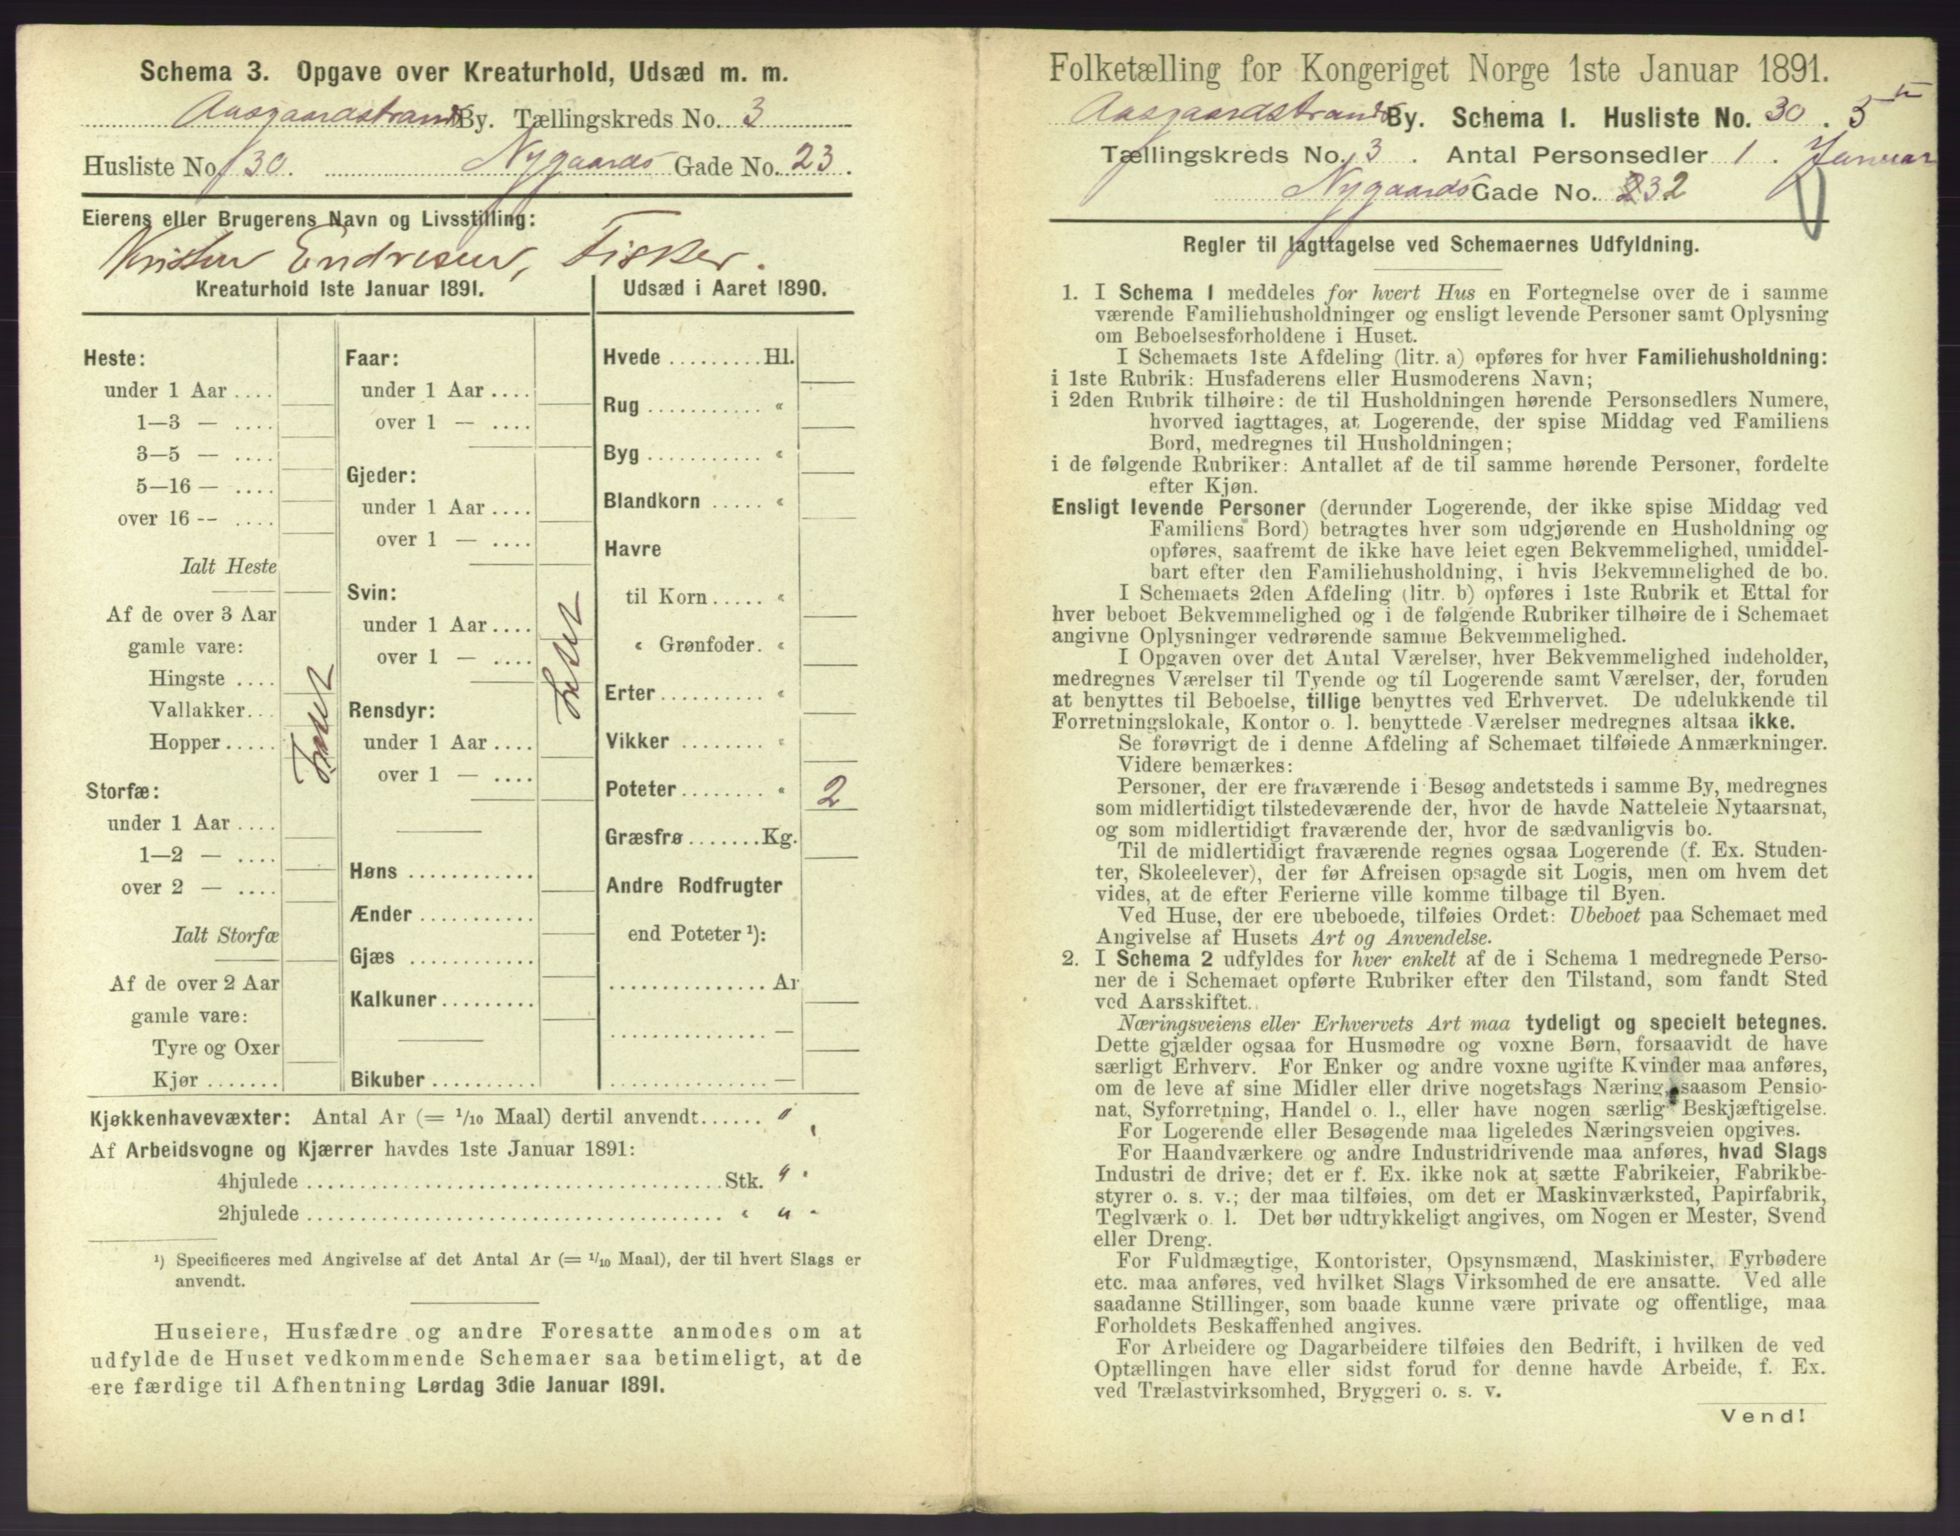 Schema 3. Opgave over Kreaturhold, Udsæd m. m.
Aasgaardstrands By. Tællingskreds No. 3
Husliste No. 30. Nygaards Gade No. 23.
Eierens eller Brugerens Navn og Livsstilling:
Kristen Endresen, Fisker.
Kreaturhold 1ste Januar 1891.
Heste:
under 1 Aar ....
1—3 — ....
3—5 — ....
5—16 — ....
over 16 -- ....
Ialt Heste
Af de over 3 Aar
gamle vare:
Hingste ....
Vallakker...
Hopper.....
Storfæ:
under 1 Aar ....
1—2 — ....
over 2 — ....
Ialt Storfæ
Af de over 2 Aar
gamle vare:
Tyre og Oxer
Kjør .......
Intet
Faar:
under 1 Aar ....
over 1 — ....
Gjeder:
under 1 Aar ....
over 1 — ....
Svin:
under 1 Aar ....
over 1 — ....
Rensdyr:
under 1 Aar ....
over 1 — ....
Høns ............
Ænder ...........
Gjæs ............
Kalkuner.........
Bikuber ..........
Intet
Udsæd i Aaret 1890.
Hvede .........Hl.
Rug ........... "
Byg ........... "
Blandkorn ..... "
Havre
til Korn..... "
" Grønfoder. "
Erter.......... "
Vikker ........ "
Poteter........ " 2
Græsfrø .......Kg.
Andre Rodfrugter
end Poteter ¹):
............... Ar
............... —
............... —
Kjøkkenhavevæxter: Antal Ar (= 1/10 Maal) dertil anvendt...... "
Af Arbeidsvogne og Kjærrer havdes 1ste Januar 1891:
4hjulede ..................................Stk. "
2hjulede .................................. " "
¹) Specificeres med Angivelse af det Antal Ar (= 1/10 Maal), der til hvert Slags er
anvendt.
Huseiere, Husfædre og andre Foresatte anmodes om at
udfylde de Huset vedkommende Schemaer saa betimeligt, at de
ere færdige til Afhentning Lørdag 3die Januar 1891.
Folketælling for Kongeriget Norge 1ste Januar 1891.
Aasgaardstrands By. Schema I. Husliste No. 30. 5
Tællingskreds No. 3. Antal Personsedler 1. Januar
Nygaards Gade No. 232
Regler til Iagttagelse ved Schemaernes Udfyldning.
1. I Schema I meddeles for hvert Hus en Fortegnelse over de i samme
værende Familiehusholdninger og ensligt levende Personer samt Oplysning
om Beboelsesforholdene i Huset.
I Schemaets 1ste Afdeling (litr. a) opføres for hver Familiehusholdning:
i 1ste Rubrik: Husfaderens eller Husmoderens Navn;
i 2den Rubrik tilhøire: de til Husholdningen hørende Personsedlers Numere,
hvorved iagttages, at Logerende, der spise Middag ved Familiens
Bord, medregnes til Husholdningen;
i de følgende Rubriker: Antallet af de til samme hørende Personer, fordelte
efter Kjøn.
Ensligt levende Personer (derunder Logerende, der ikke spise Middag ved
Familiens Bord) betragtes hver som udgjørende en Husholdning og
opføres, saafremt de ikke have leiet egen Bekvemmelighed, umiddel-
bart efter den Familiehusholdning, i hvis Bekvemmelighed de bo.
I Schemaets 2den Afdeling (litr. b) opføres i 1ste Rubrik et Ettal for
hver beboet Bekvemmelighed og i de følgende Rubriker tilhøire de i Schemaet
angivne Oplysninger vedrørende samme Bekvemmelighed.
I Opgaven over det Antal Værelser, hver Bekvemmelighed indeholder,
medregnes Værelser til Tyende og til Logerende samt Værelser, der, foruden
at benyttes til Beboelse, tillige benyttes ved Erhvervet. De udelukkende til
Forretningslokale, Kontor o. l. benyttede Værelser medregnes altsaa ikke.
Se forøvrigt de i denne Afdeling af Schemaet tilføiede Anmærkninger.
Videre bemærkes:
Personer, der ere fraværende i Besøg andetsteds i samme By, medregnes
som midlertidigt tilstedeværende der, hvor de havde Natteleie Nytaarsnat,
og som midlertidigt fraværende der, hvor de sædvanligvis bo.
Til de midlertidigt fraværende regnes ogsaa Logerende (f. Ex. Studen-
ter, Skoleelever), der før Afreisen opsagde sit Logis, men om hvem det
vides, at de efter Ferierne ville komme tilbage til Byen.
Ved Huse, der ere ubeboede, tilføies Ordet: Ubeboet paa Schemaet med
Angivelse af Husets Art og Anvendelse.
2. I Schema 2 udfyldes for hver enkelt af de i Schema 1 medregnede Perso-
ner de i Schemaet opførte Rubriker efter den Tilstand, som fandt Sted
ved Aarsskiftet.
Næringsveiens eller Erhvervets Art maa tydeligt og specielt betegnes.
Dette gjælder ogsaa for Husmødre og voxne Børn, forsaavidt de have
særligt Erhverv. For Enker og andre voxne ugifte Kvinder maa anføres,
om de leve af sine Midler eller drive nogetslags Næring, saasom Pensio-
nat, Syforretning, Handel o. l., eller have nogen særlig Beskjæftigelse.
For Logerende eller Besøgende maa ligeledes Næringsveien opgives.
For Haandværkere og andre Industridrivende maa anføres, hvad Slags
Industri de drive; det er f. Ex. ikke nok at sætte Fabrikeier, Fabrikbe-
styrer o. s. v.; der maa tilføies, om det er Maskinværksted, Papirfabrik,
Teglværk o. l. Det bør udtrykkeligt angives, om Nogen er Mester, Svend
eller Dreng.
For Fuldmægtige, Kontorister, Opsynsmænd, Maskinister, Fyrbødere
etc. maa anføres, ved hvilket Slags Virksomhed de ere ansatte. Ved alle
saadanne Stillinger, som baade kunne være private og offentlige, maa
Forholdets Beskaffenhed angives.
For Arbeidere og Dagarbeidere tilføies den Bedrift, i hvilken de ved
Optællingen have eller sidst forud for denne havde Arbeide, f. Ex.
ved Trælastvirksomhed, Bryggeri o. s. v.
Vend!